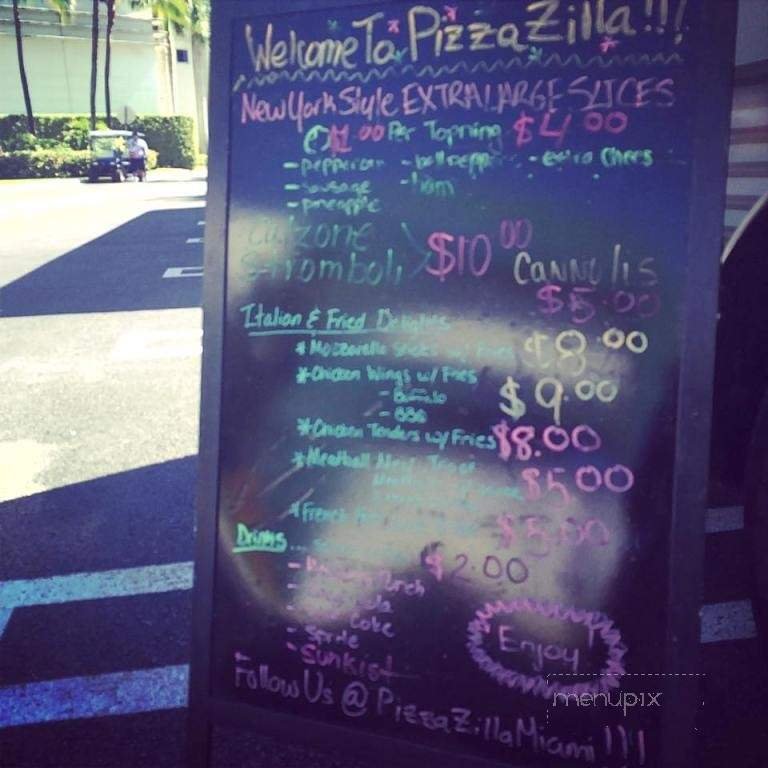 Welcome To PizzaZilla!!!
New York Style EXTRA LARGE SLICES
$1.00 Per Topning $4.00
- pepperoni - bell pepper - extra Chees
- Sausage - ham
- pineapple
Calzone
Stromboli $10.00 Cannolis
$5.00
Italian & Fried Delights
* Mozzarella Sticks w/ Fries $8.00
* Chicken Wings w/ Fries
- Buffalo $9.00
- BBQ
* Chicken Tenders w/ Fries $8.00
* Meatball
$5.00
* French $5.00
Drinks
$2.00
- Punch
- Coke
- Sprite
- Sunkist
Enjoy
Follow Us @ PizzaZillaMiami!!!
menupix